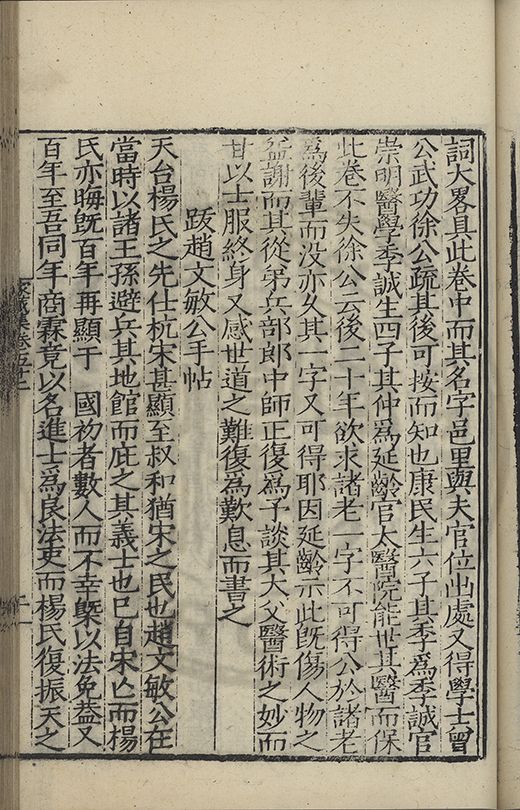 詞大畧具此卷中而其名字邑里與夫官位出處又得學士曾
公武功徐公疏其後可按而知也康民生六子其季爲季誠官
崇明醫學季誠生四子其仲爲延齡官太醫院能世其醫而保
此卷不失徐公云後二十年欲求諸老一字不可得公於諸老
爲後輩而没亦久其一字又可得耶因延齡示此旣傷人物之
益謝而其從弟兵部郎中師正復爲予談其大父醫術之妙而
甘以士服終身又感世道之難復爲歎息而書之
跋趙文敏公手帖
天台楊氏之先仕杭宋甚顯至叔和猶宋之民也趙文敏公在
當時以諸王孫避兵其地館而庇之其義士也已自宋亾而楊
氏亦晦旣百年再顯于　國初者數人而不幸槩以法免葢又
百年至吾同年商霖竟以名進士爲良法吏而楊氏復振天之
家藏集卷五十二